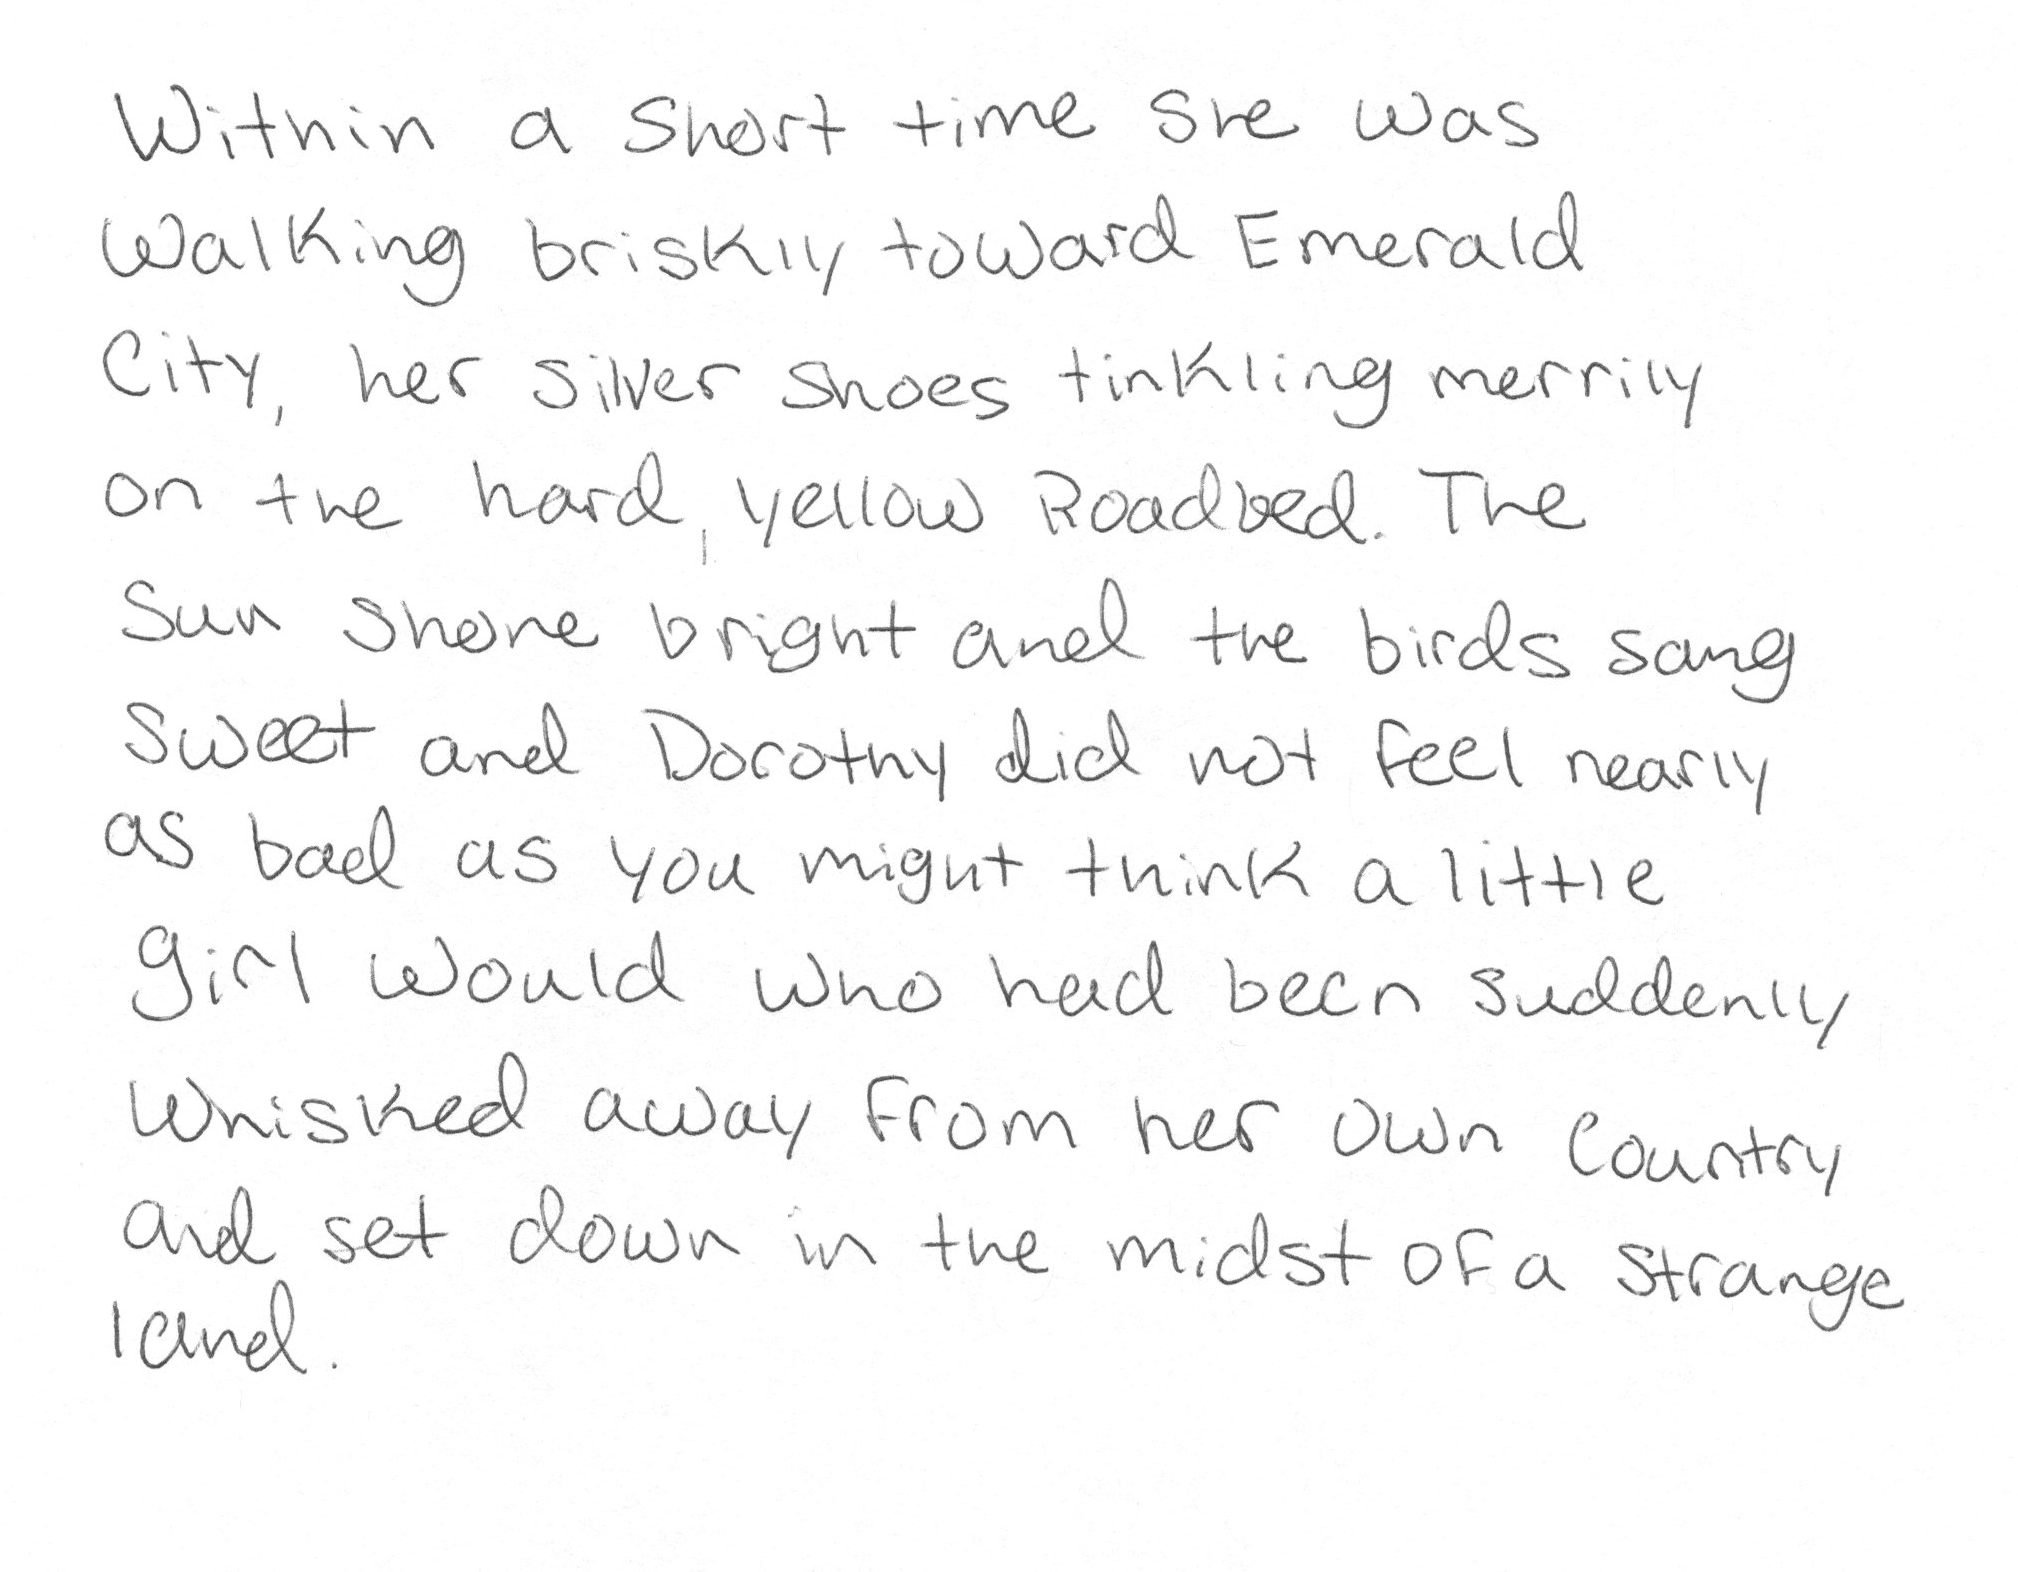 Within a short time she was
walking briskly toward Emerald
City, her silver shoes tinkling merrily
on the hard, yellow Roadbed. The
sun shone bright and the birds sang
sweet and Dorothy did not feel nearly
as bad as you might think a little
girl would who had been suddenly
whisked away from her own country
and set down in the midst of a strange
land.